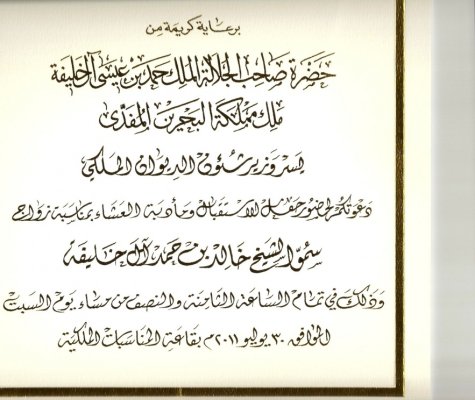 برعاية كريمة من
حضرة صاحب الجلالة الملك حمد بن عيسى آل خليفة
ملك مملكة البحرين المفدى
يسر وزير شئون الديوان الملكي
دعوتكم لحضور حفل الاستقبال ومأدبة العشاء بمناسبة زواج
سمو الشيخ خالد بن حمد آل خليفة
وذلك في تمام الساعة الثامنة والنصف من مساء يوم السبت
الموافق ٣٠ يوليو ٢٠١١م بقاعة المناسبات الملكية